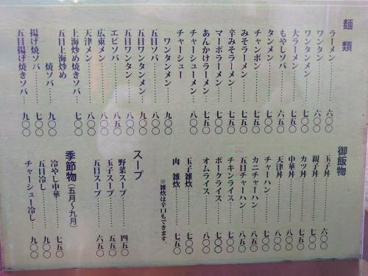 麺類
ラーメン……六〇〇
ワンタン……六〇〇
ワンタンメン……七〇〇
大ラーメン……七五〇
もやしソバ……六五〇
タンメン……七〇〇
チャンポン……七五〇
みそラーメン……七五〇
辛みそラーメン
マーボラーメン
あんかけラーメン……七五〇
チャーシューメン……八〇〇
チャーシュー
ワンタンメン……九〇〇
五目ソバ
五目ワンタン
五目ワンタンメン……九〇〇
エビソバ……八五〇
広東メン……八〇〇
天津メン……八〇〇
上海焼きソバ……七〇〇
五目上海炒め
焼ソバ……七〇〇
揚げ焼きソバ……八〇〇
五目揚げ焼きソバ……九〇〇
御飯物
玉子丼……六〇〇
親子丼……七〇〇
カツ丼……七五〇
中華丼……七五〇
天津丼
チャーハン……七〇〇
カニチャーハン……八〇〇
五目チャーハン……八五〇
チキンライス……七五〇
ポークライス……七五〇
オムライス……八〇〇
※雑炊は辛口もできます
玉子雑炊……七〇〇
肉雑炊……七五〇
スープ
野菜スープ……四五〇
玉子スープ……五五〇
五目スープ……六五〇
季節物(五月〜九月)
冷やし中華……七五〇
五目冷し……九〇〇
チャーシュー冷し……九〇〇